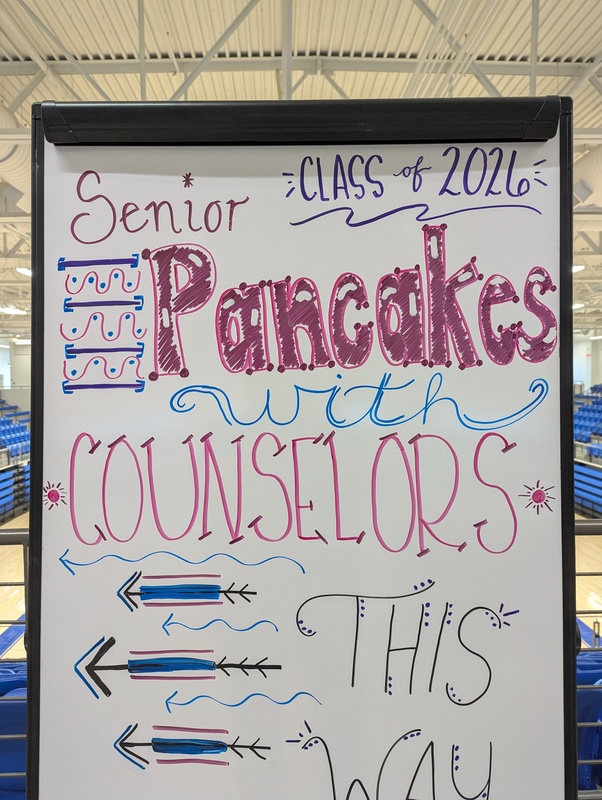 CLASS of 2026
Senior
Pancakes
with
COUNSELORS
THIS
WAY